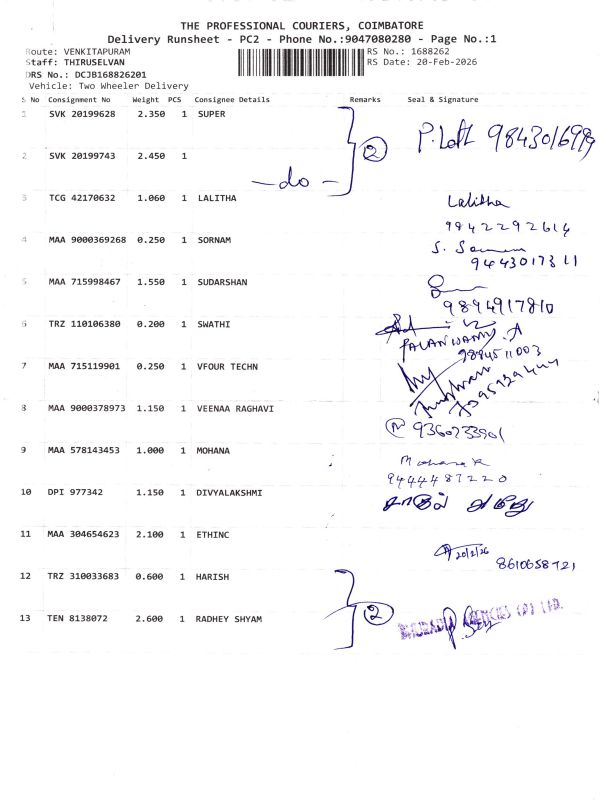 THE PROFESSIONAL COURIERS, COIMBATORE
Delivery Runsheet - PC2 - Phone No.:9047080280 - Page No.:1
Route: VENKITAPURAM RS No.: 1688262
Staff: THIRUSELVAN RS Date: 20-Feb-2026
DRS No.: DCJB168826201
Vehicle: Two Wheeler Delivery
S No Consignment No Weight PCS Consignee Details Remarks Seal & Signature
1 SVK 20199628 2.350 1 SUPER
2
2 SVK 20199743 2.450 1
-do-
3 TCG 42170632 1.060 1 LALITHA Lalitha
9842292614
4 MAA 9000369268 0.250 1 SORNAM
9443017311
5 MAA 715998467 1.550 1 SUDARSHAN
9894917810
6 TRZ 110106380 0.200 1 SWATHI
PALANISAMY. A
9894511003
7 MAA 715119901 0.250 1 VFOUR TECHN
8 MAA 9000378973 1.150 1 VEENAA RAGHAVI
9360233901
9 MAA 578143453 1.000 1 MOHANA Mohana R
9444487220
10 DPI 977342 1.150 1 DIVYALAKSHMI
11 MAA 304654623 2.100 1 ETHINC
20/2/26
8610658721
12 TRZ 310033683 0.600 1 HARISH
2
13 TEN 8138072 2.600 1 RADHEY SHYAM